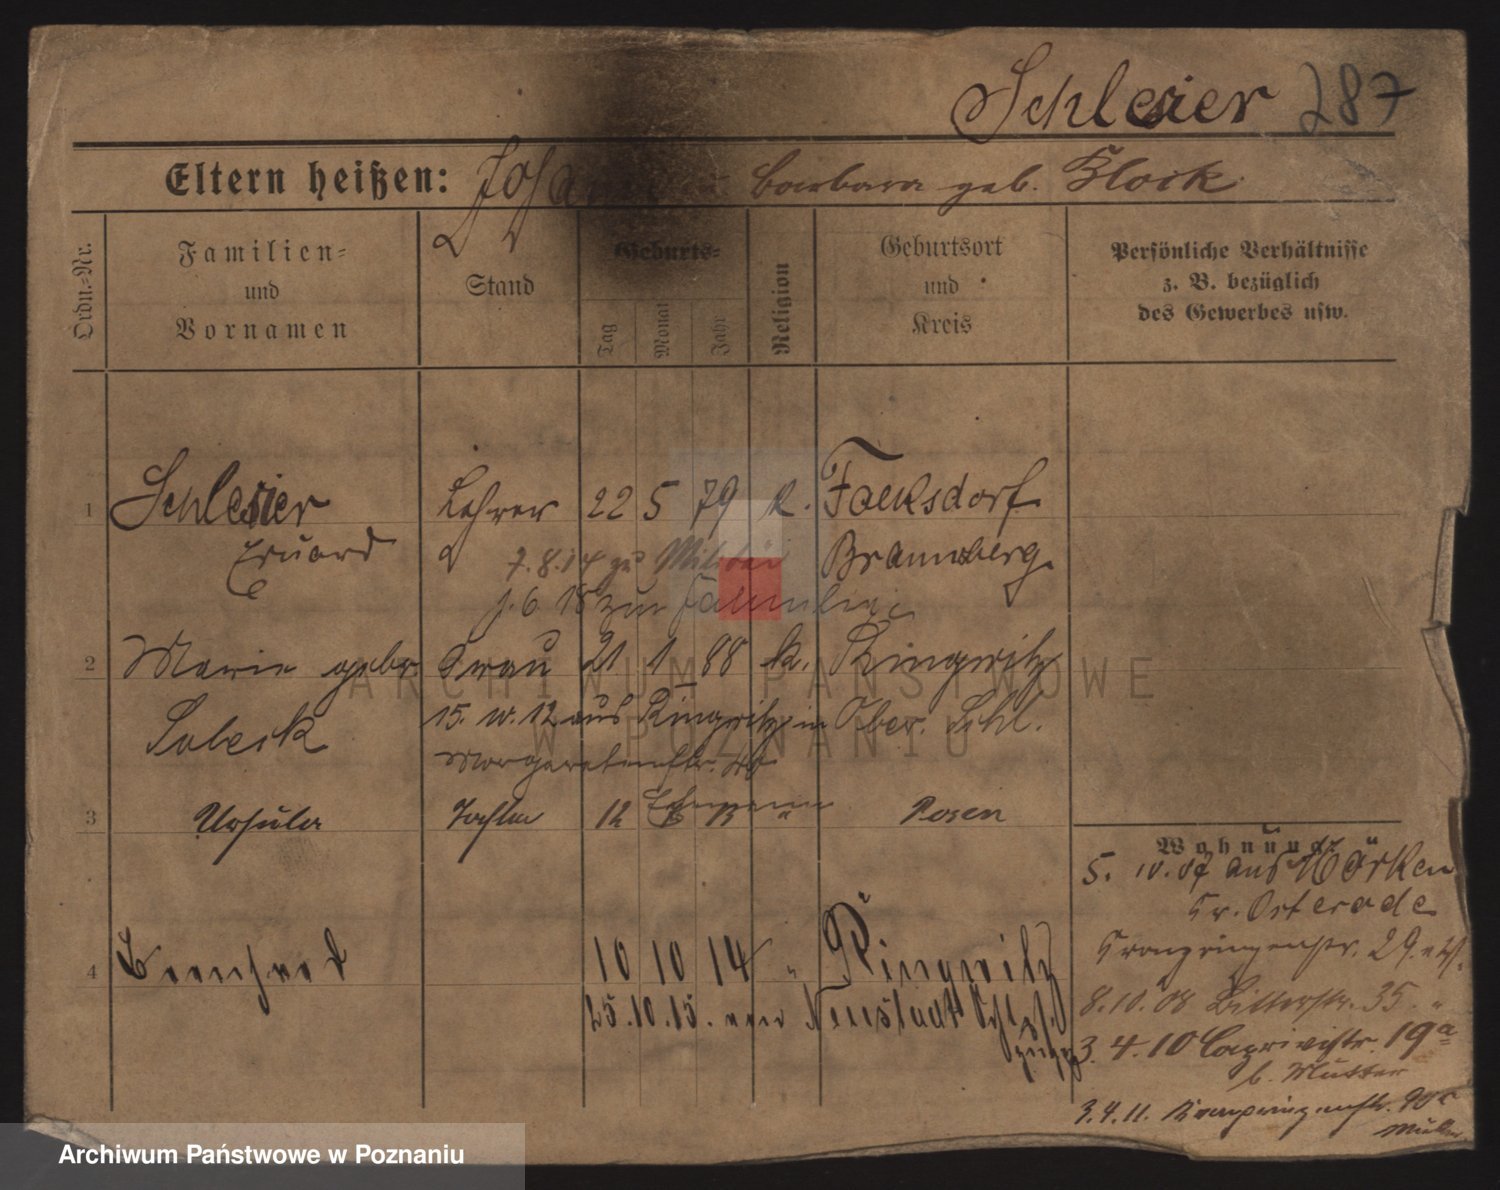 Schlesier 287
Eltern heißen: Johann u Barbara geb. Block
Ordn.-Nr.
Familien-
und
Vornamen
Stand
Geburts-
Tag
Monat
Jahr
Religion
Geburtsort
und
Kreis
Persönliche Verhältnisse
z. B. bezüglich
des Gewerbes usw.
1 Schlesier Lehrer 22 5 79 k. Facksdorf
Eduard 7.8.14 zu Militär Braunsberg.
.6.18 zur Familie
2 Marie gebr Frau 21 1 88 k. Ringwitz
Sobeck 15. 12 aus Ringwitz in Ober. Schl.
Margaretenstr. 40
3 Ursula Tochter 12 " Posen
4 Bernhard 10 10 14 " Ringwitz
25.10.15. von Neustadt O/Schl.
zugez
Wohnung
5. 10.07 aus Mörken
Kr. Osterode
Kronprinzenstr. 29.
8.10.08 Bitterstr. 35. "
3.4.10 Caprivistr. 19a
b. Mutter
3.4.11. Kronprinzenstr. 90
Müller
ARCHIWUM PAŃSTWOWE
W POZNANIU
Archiwum Państwowe w Poznaniu